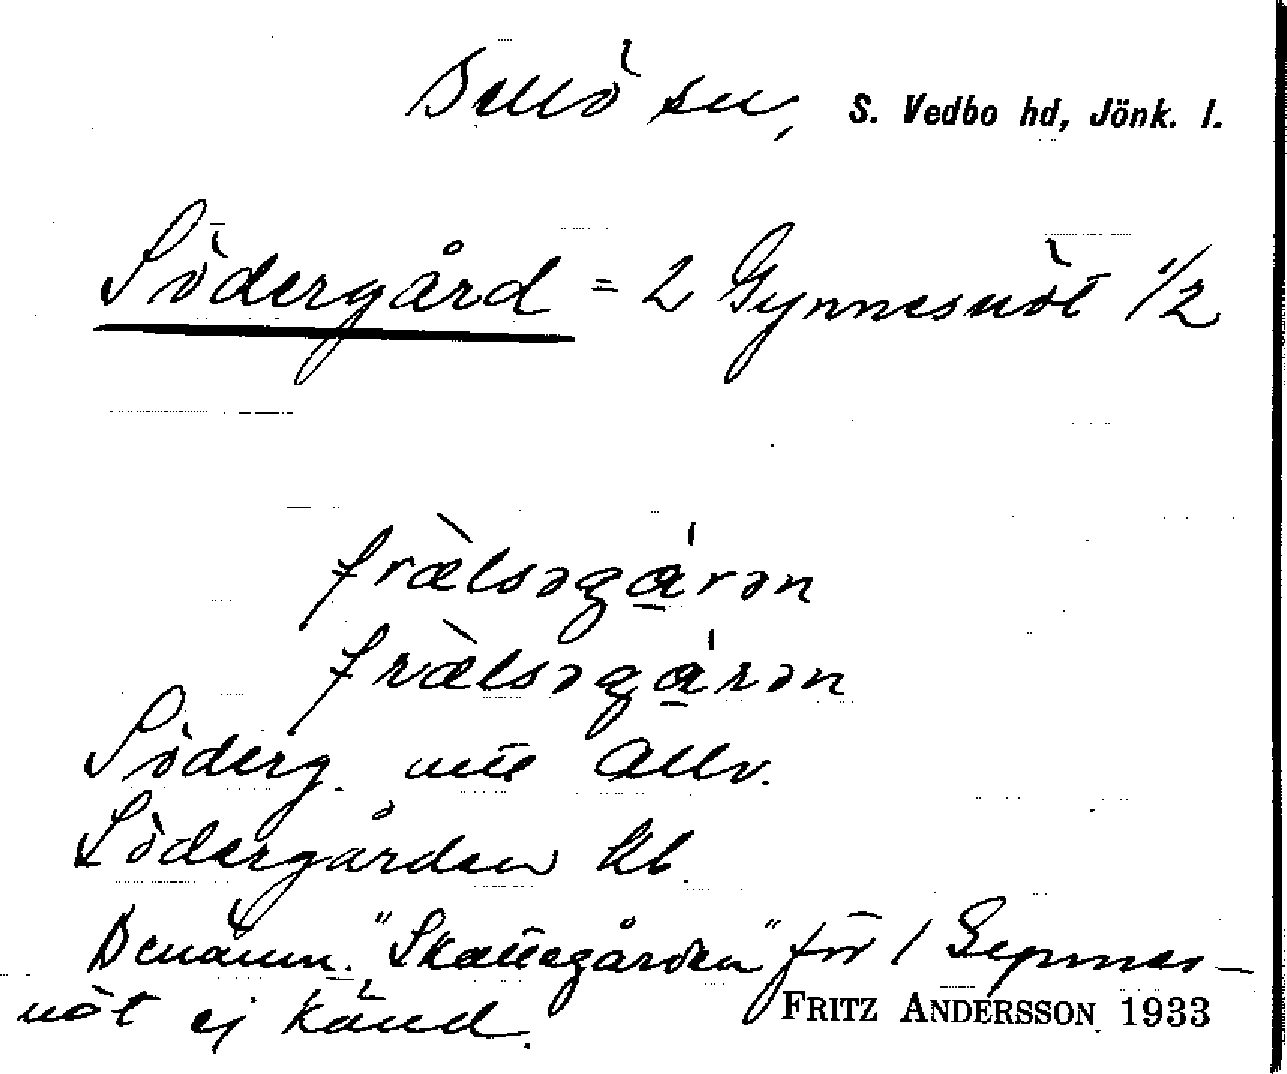 Bellö sn, S. Vedbo hd, Jönk. l.
Södergård = 2 Gynnesnöt 1/2
fræ̀lsəga̱̍rən
fræ̀lsəga̱̍rən
Söderg. utt. allv.
Södergården kb.
Benämn. "Skattegården" för 1 Gynnes-
nöt ej känd.
FRITZ ANDERSSON 1933